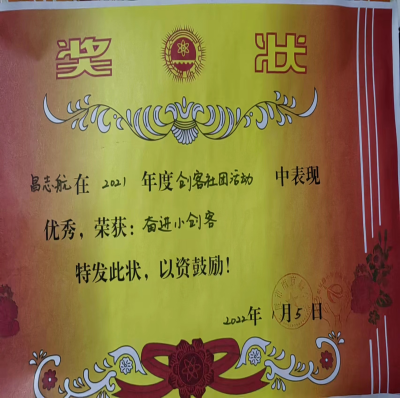 奖状
昌志航在 2021 年度剑客社团活动 中表现
优秀,荣获:奋进小剑客
特发此状,以资鼓励!
2022年1月5日